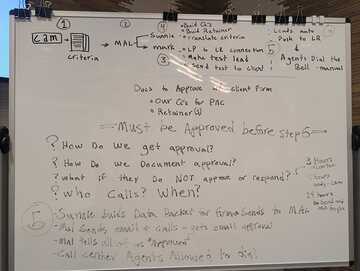 ① ② ④ • Build CQ's Leads auto
• Build Retainer • Push to LR
Cam → → MAL → Sunnie • Translate criteria
criteria mark • LP to LR connection 5 &
③ • Make test lead Agents Dial the
• Send test to client Bell - manual
Docs to Approve w/ client Firm
• Our CQ's for PNC
• Retainer(s)
Must be Approved before step 5
? How Do we get approval?
? How Do we Document approval?
? what if they Do NOT approve or respond?
? Who Calls? When?
3 hours
24 hours
⑤ - Sunnie builds Data Packet for firm & Sends to Math
- Mal Sends email & calls - gets email approval
- Mal tells all of us "Approved"
- Call Center Agents Allowed to Dial